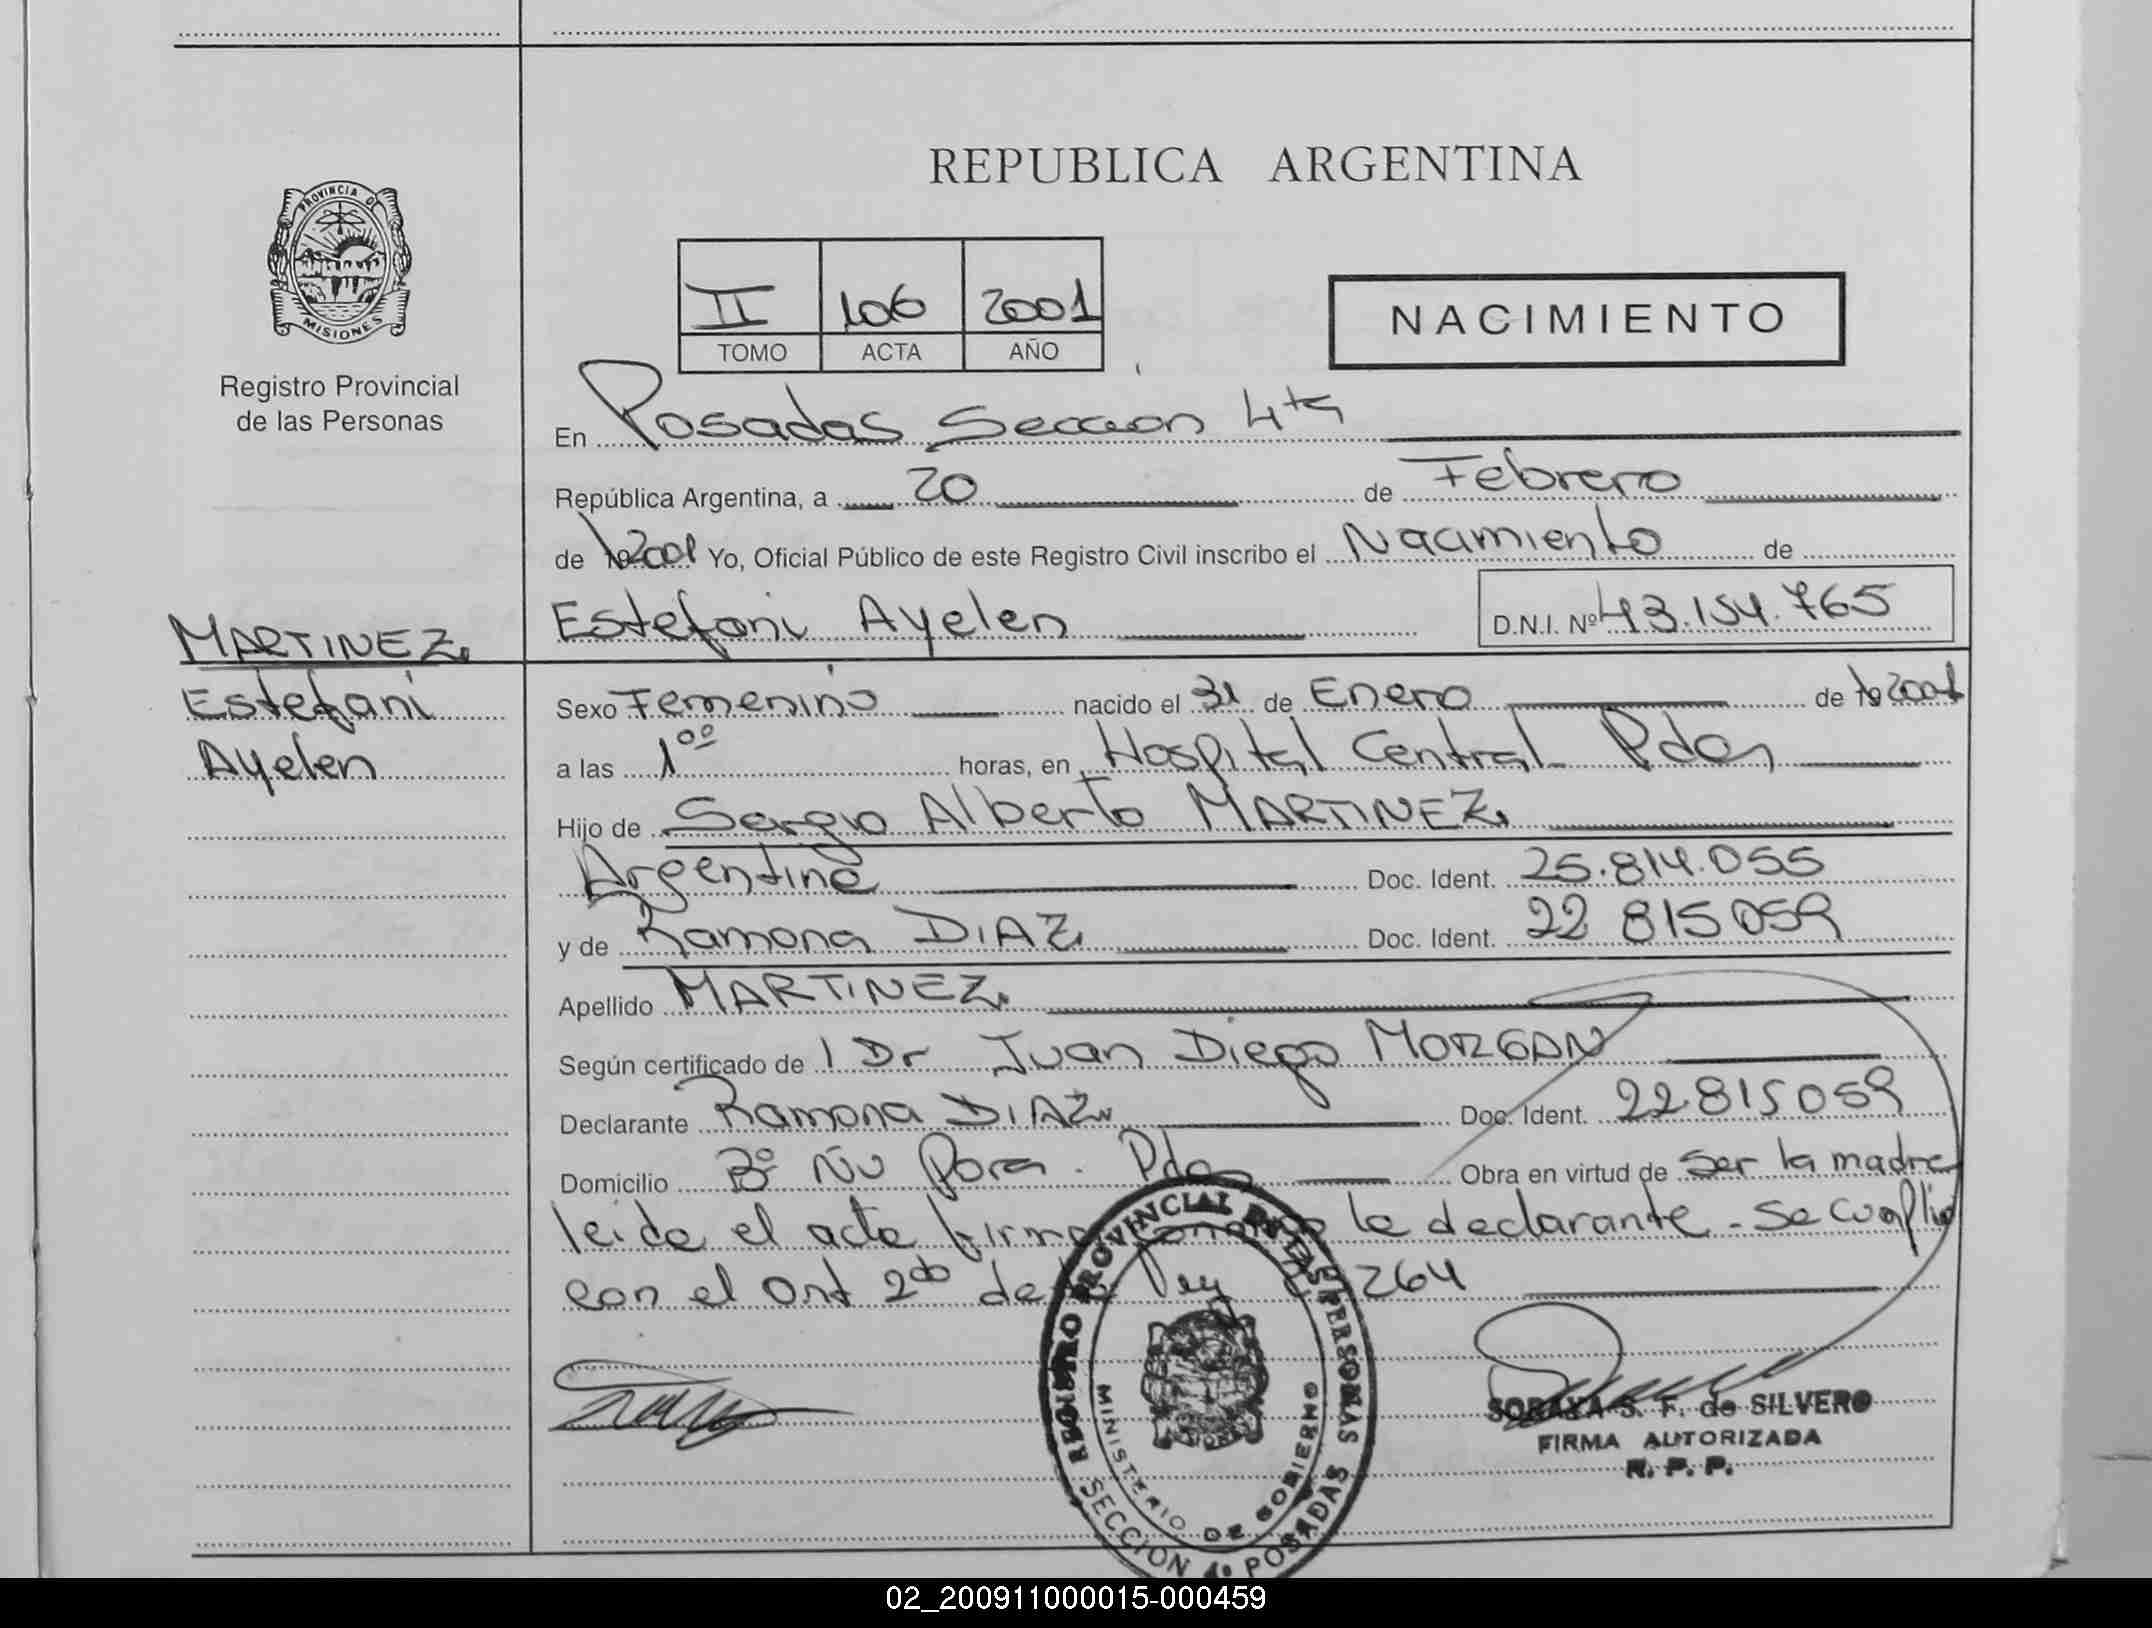 REPUBLICA ARGENTINA
PROVINCIA DE
MISIONES
Registro Provincial
de las Personas
II 106 2001
TOMO ACTA AÑO
NACIMIENTO
En Posadas Seccion 4ta
República Argentina, a 20 de Febrero
de 2001 Yo, Oficial Público de este Registro Civil inscribo el Nacimiento de
Estefani Ayelen D.N.I. Nº 43.154.765
MARTINEZ
Estefani
Ayelen
Sexo Femenino nacido el 31 de Enero de 19 2001
a las 1ºº horas, en Hospital Central Pdas
Hijo de Sergio Alberto MARTINEZ
Argentino Doc. Ident. 25.814.055
y de Ramona DIAZ Doc. Ident. 22 815 059
Apellido MARTINEZ
Según certificado de l Dr Juan Diego MORGAN
Declarante Ramona DIAZ Doc. Ident. 22.815 059
Domicilio Bº Ñu Pora. Pdas Obra en virtud de Ser la madre
leida el acta firma conmigo la declarante - Se cumplio
con el Art 2do de la Ley 264
REGISTRO PROVINCIAL DE LAS PERSONAS
MINISTERIO DE GOBIERNO
SECCION 4º POSADAS
SORAYA S. F. de SILVERO
FIRMA AUTORIZADA
R. P. P.
02_200911000015-000459